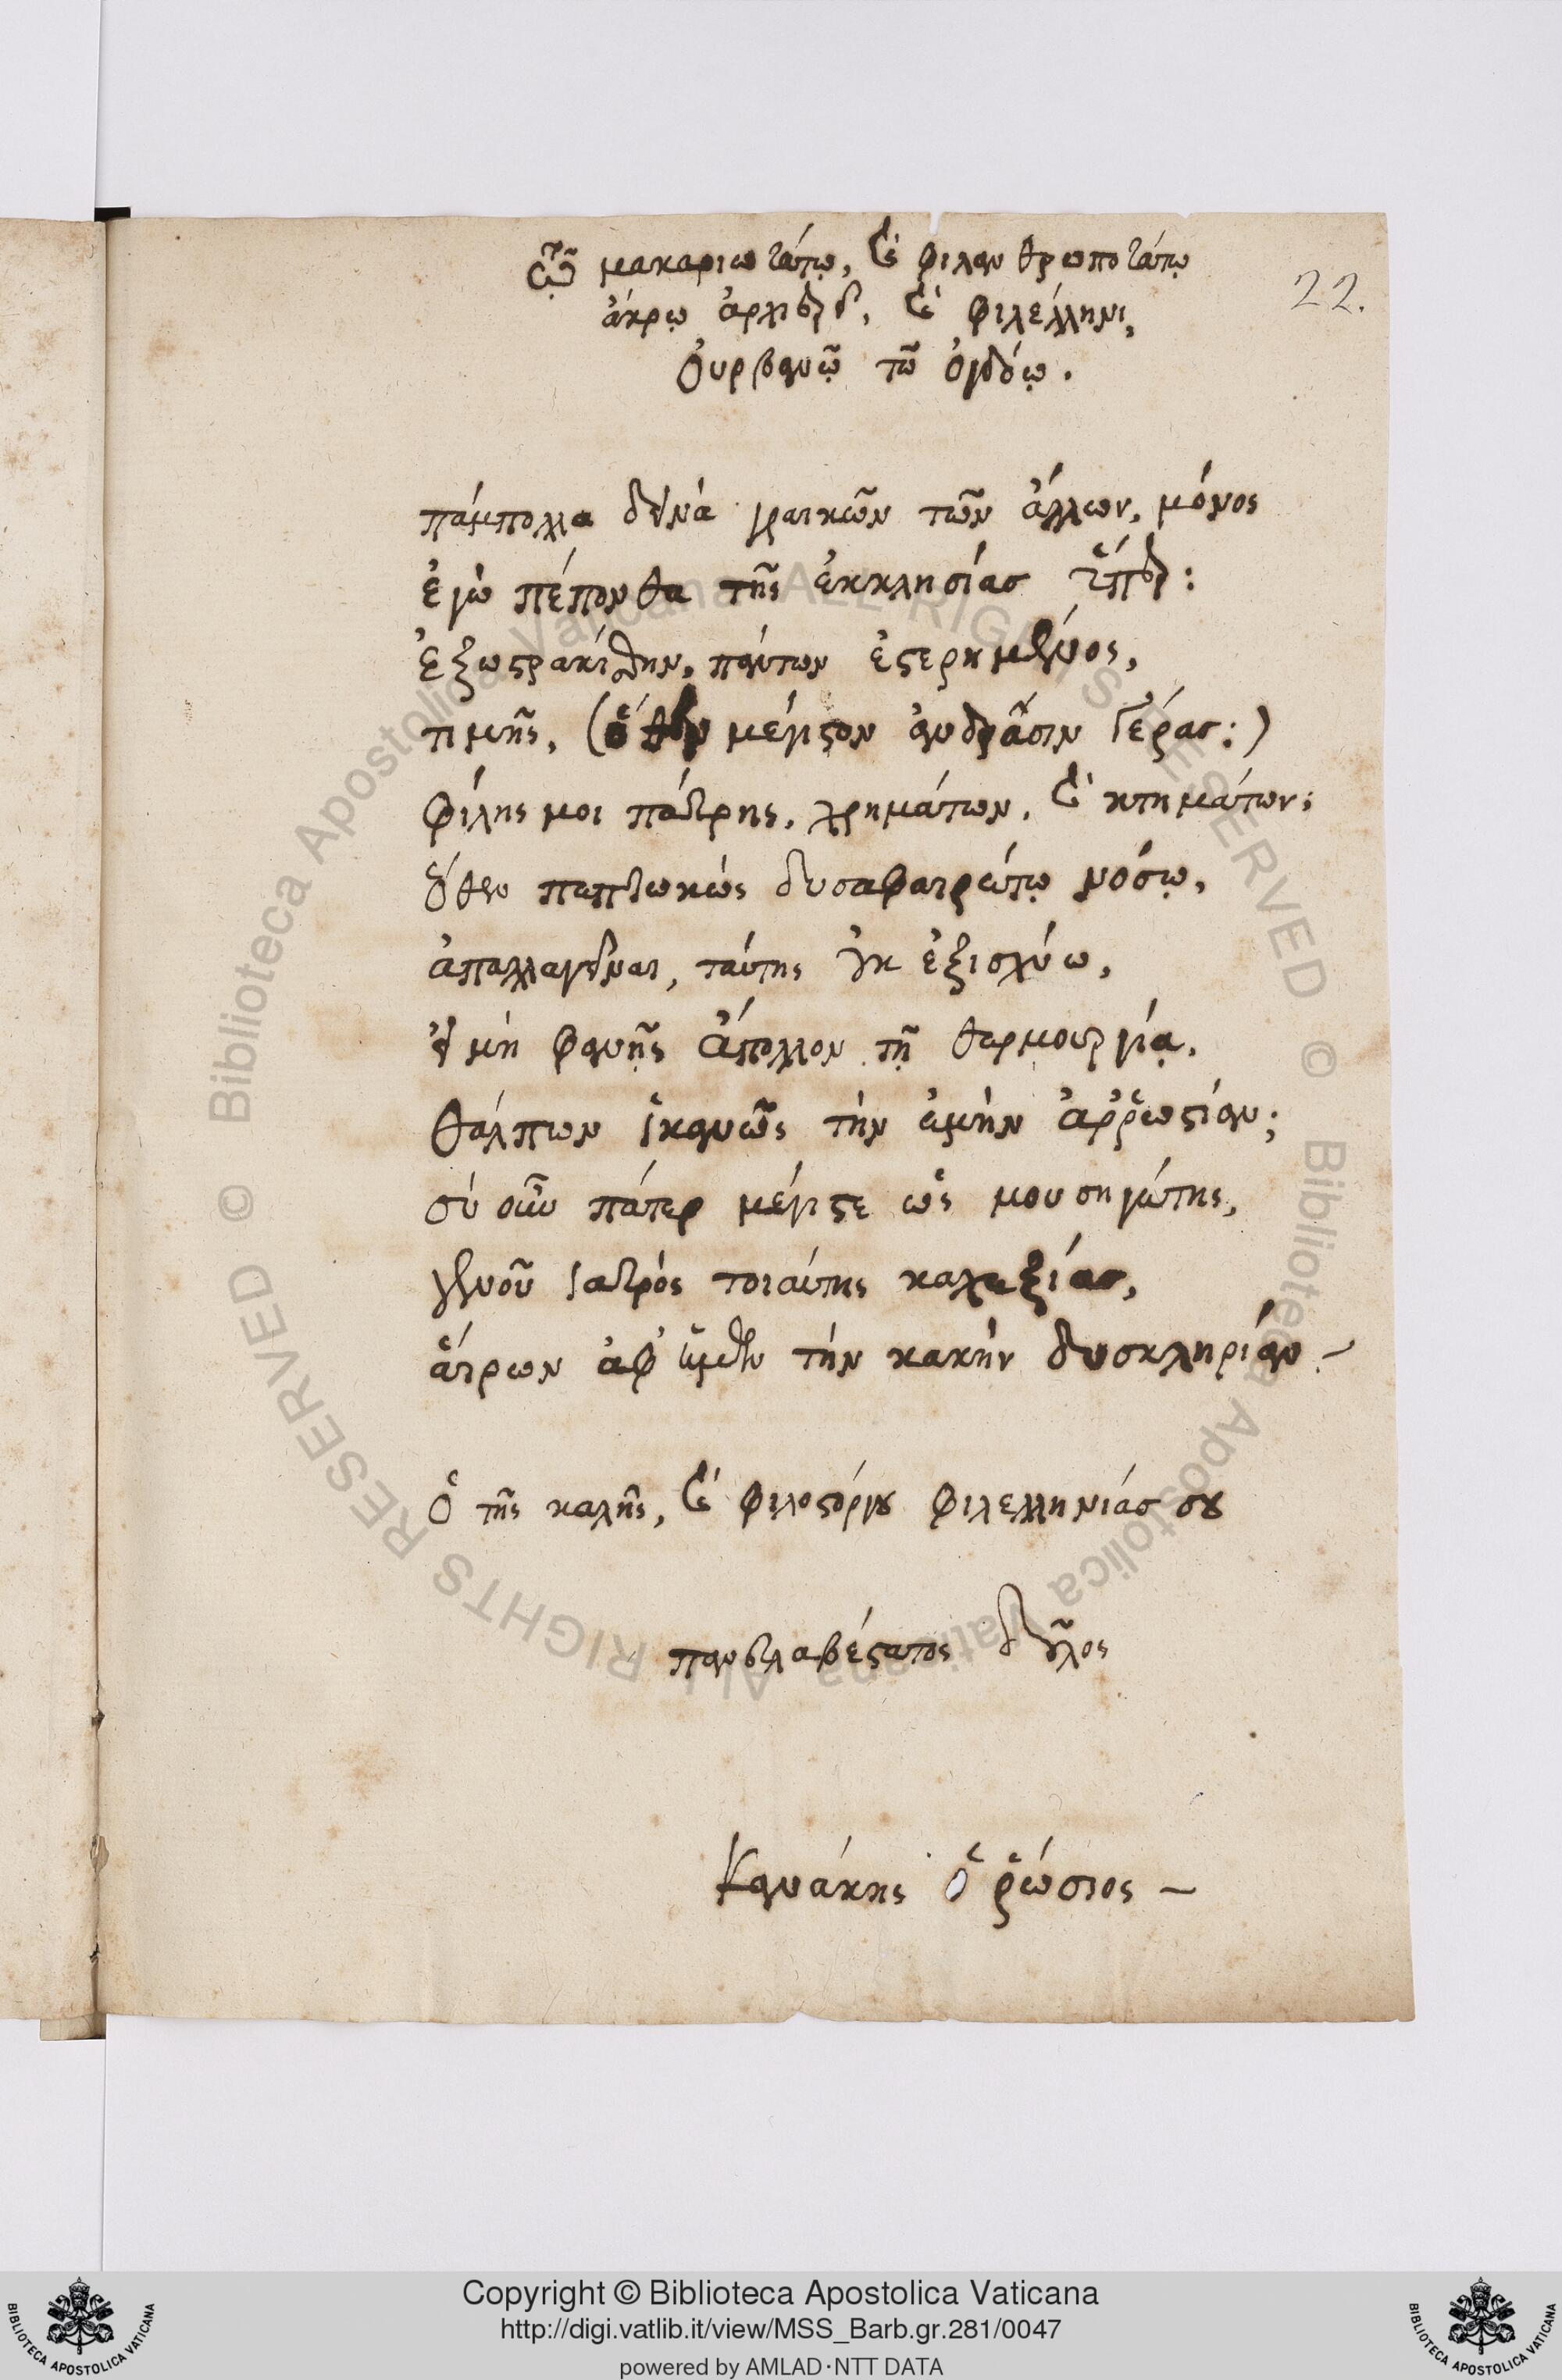 Τῷ μακαριωτάτῳ, καὶ φιλανθρωποτάτῳ
22.
ἄκρῳ ἀρχιερεῖ, καὶ φιλέλληνι,
Οὐρβανῷ τῶ ὀγδόῳ.
πάμπολλα δεινὰ γραικῶν τῶν ἄλλων, μόνος
ἐγὼ πέπονθα τῆς ἐκκλησίας ὕπερ:
ἐξωστρακίσθην, πάντων ἐστερημένος,
τιμῆς, (ὅπερ μέγιστον ἀνδράσιν γέρας:)
φίλης μοι πάτρης, χρημάτων, καὶ κτημάτων:
ὅθεν πεπτωκὼς δυσαφαιρέτῳ νόσῳ,
ἀπαλλαγεῖναι, ταύτης οὐκ ἐξισχύω,
εἰ μὴ φανῇς ἄπολλον τῇ θερμουργίᾳ,
θάλπων ἱκανῶς τὴν ἐμὴν ἀῤῥωστίαν;
σὺ οὖν πάτερ μέγιστε ὡς μουσηγέτης,
γενοῦ ἰατρὸς τοιαύτης καχεξίας,
αἴρων ἀφ' ἡμῶν τὴν κακὴν δυσκληρίαν –
Ὁ τῆς καλῆς, καὶ φιλοστόργου φιλελληνίας σου
πανευλαβέστατος δοῦλος
Κανάκης ὁ ῥώσιος –
© Biblioteca Apostolica Vaticana ALL RIGHTS RESERVED © Biblioteca Apostolica Vaticana ALL RIGHTS RESERVED
BIBLIOTECA APOSTOLICA VATICANA
Copyright © Biblioteca Apostolica Vaticana
http://digi.vatlib.it/view/MSS_Barb.gr.281/0047
powered by AMLAD·NTT DATA
BIBLIOTECA APOSTOLICA VATICANA